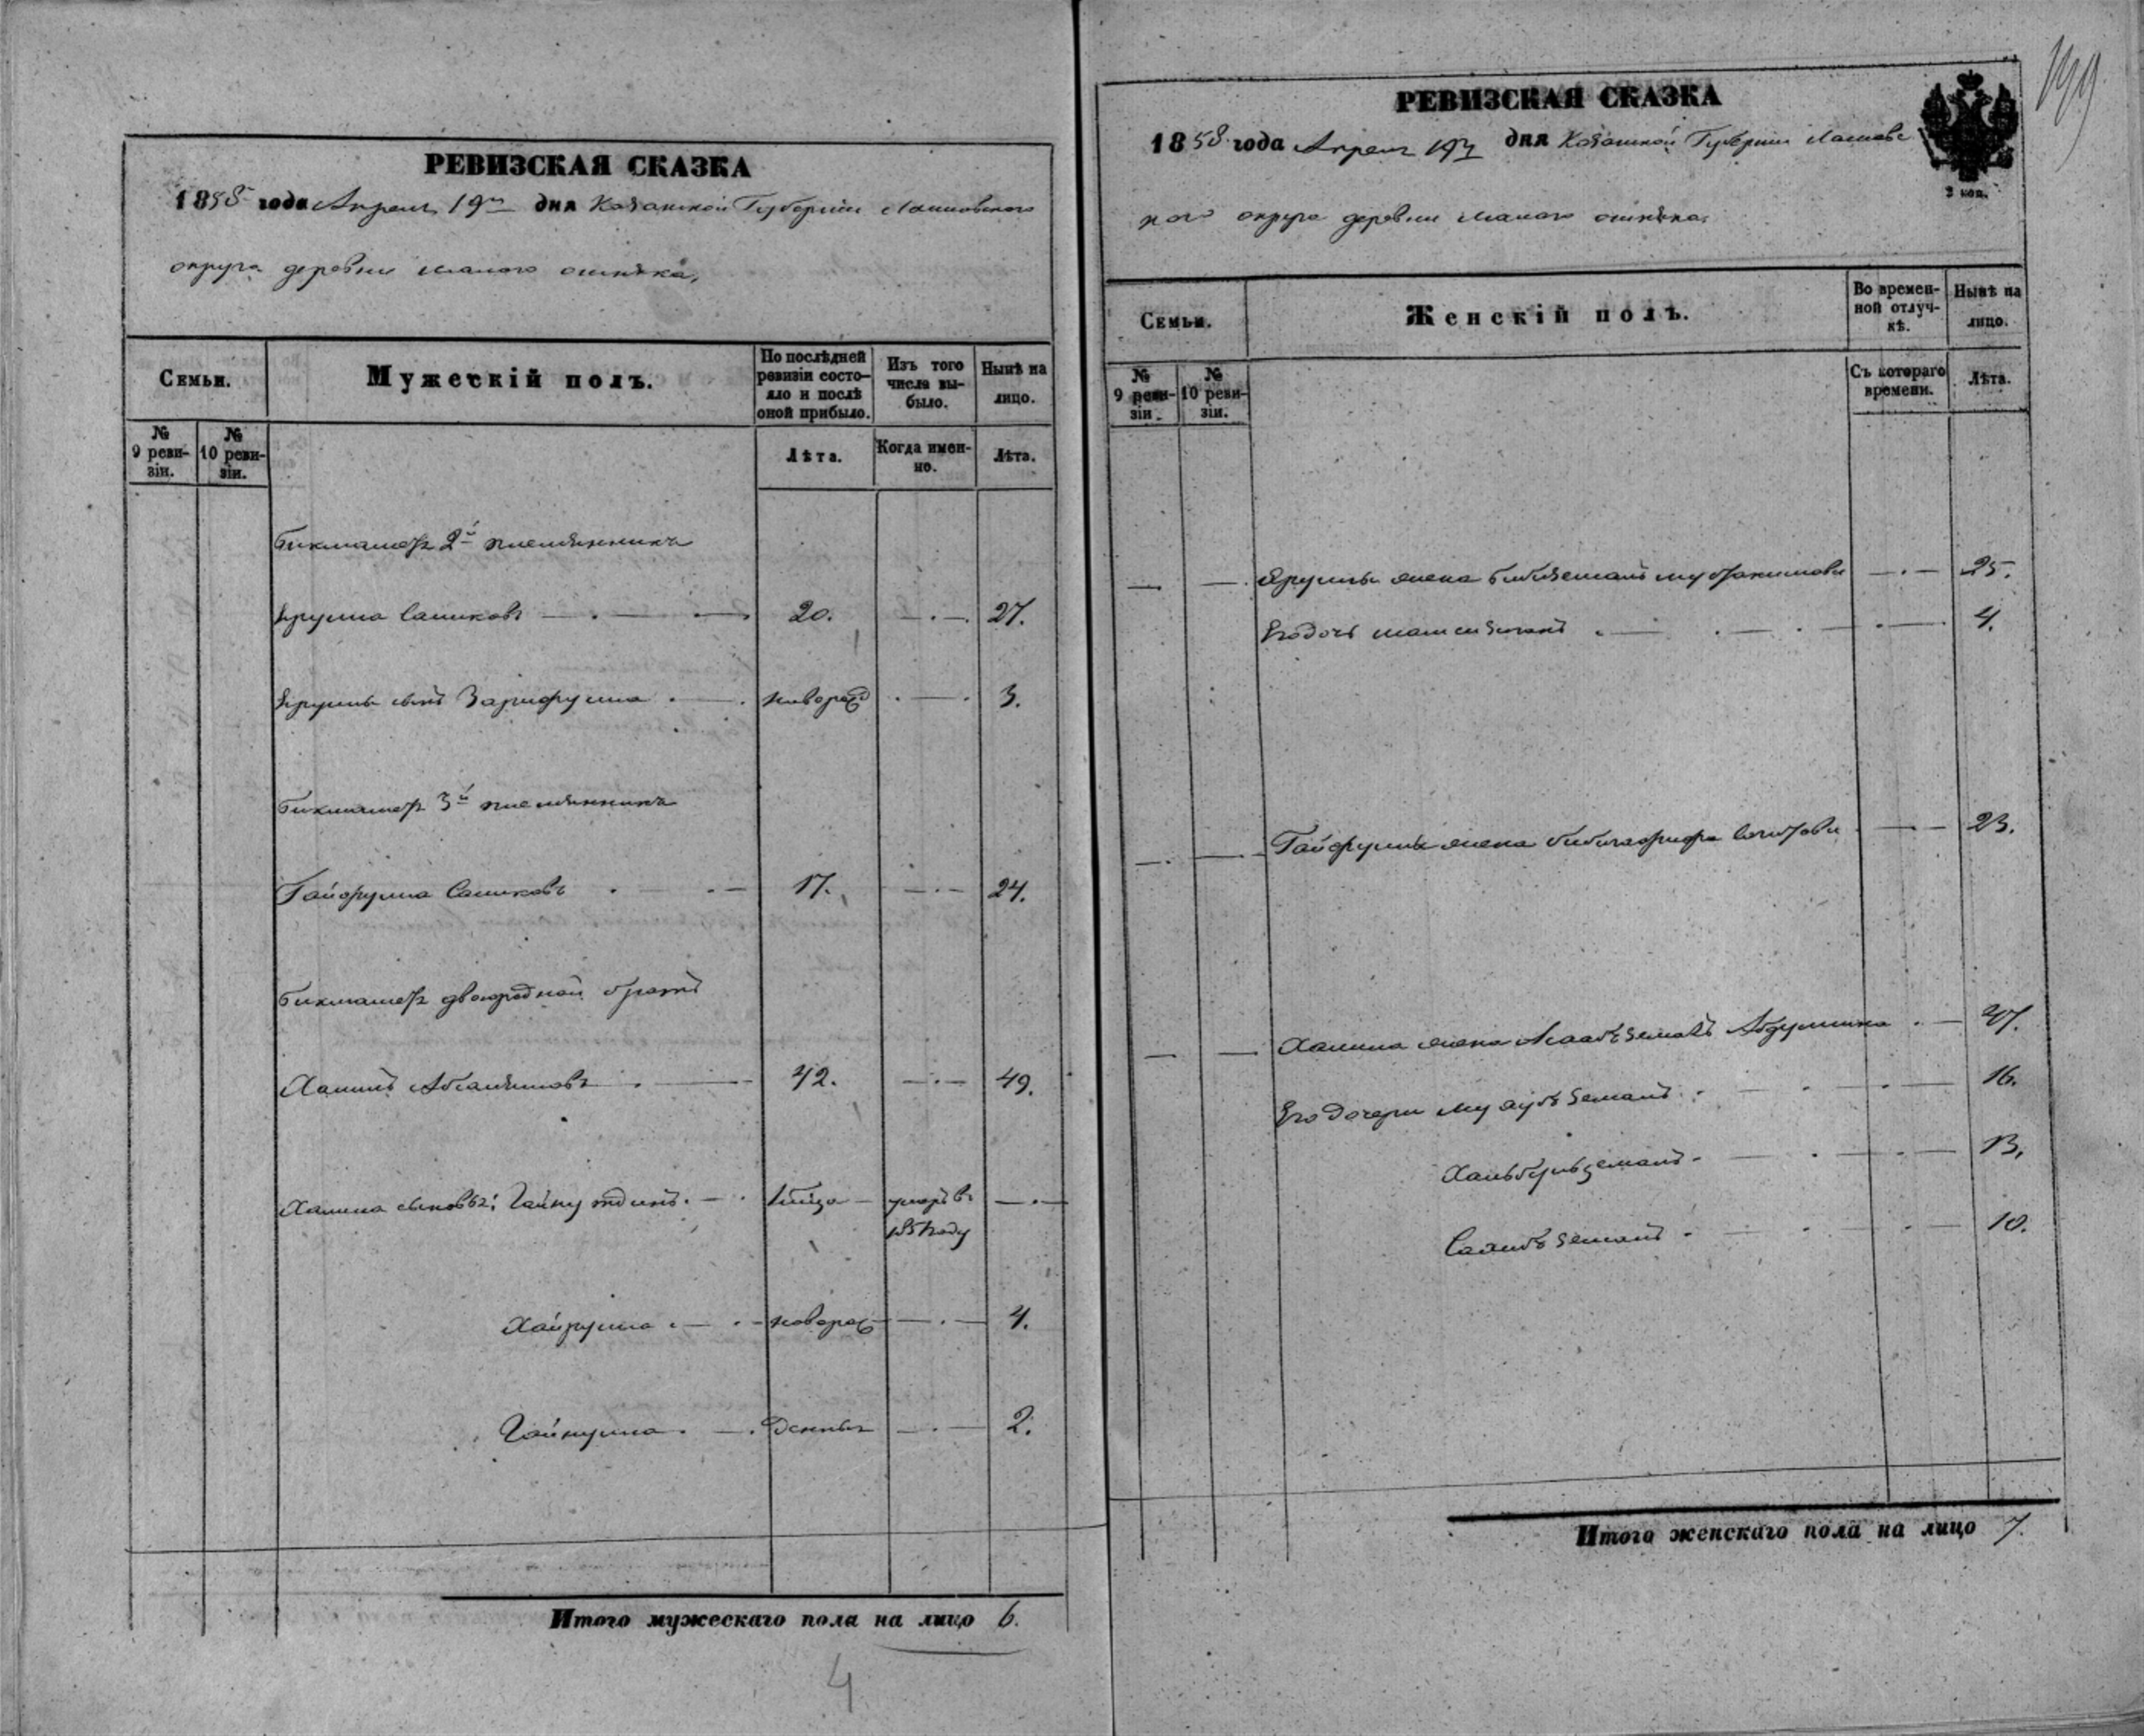 РЕВИЗСКАЯ СКАЗКА
1858 года Апреля 19го дня Казанской Губернiи Лаишовскаго
округа деревни малого ошняка,
Семьи.
Мужескiй полъ.
По послѣдней ревизiи состояло и послѣ оной прибыло.
Изъ того числа выбыло.
Нынѣ на лицо.
№ 9 ревизiи.
№ 10 ревизiи.
Лѣта.
Когда именно.
Лѣта.
Бикмаметя 2й племянникъ
Ярулла Саликовъ 20. 27.
Яруллы сынъ Зарифулла новорожд 3.
Бикмаметя 3й племянникъ
Гайфулла Саликовъ 17. 24.
Бикмаметя двоюродной братъ
Халилъ 42. 49.
Халила сыновья: Гайнутдинъ умеръ въ
году
Хайрулла новорож 4.
Гайнулла 2.
Итого мужескаго пола на лицо 6.
4
199
РЕВИЗСКАЯ СКАЗКА
1858 года Апреля 19 дня Казанской Губернiи Лаишовс
3 коп.
каго округа деревни малого ошняка,
Семьи.
Женскiй полъ.
Во временной отлучкѣ.
Нынѣ на лицо.
№ 9 ревизiи.
№ 10 ревизiи.
Съ котораго времени.
Лѣта.
Яруллы жена 25.
Его дочь 4.
Гайфуллы жена 23.
Халила жена 47.
Его дочери 16.
13.
10.
Итого женскаго пола на лицо 7.